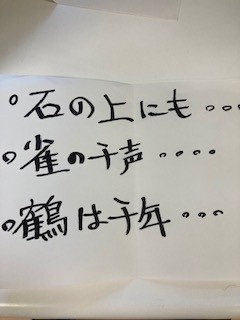 ○石の上にも...
○雀の千声....
○鶴は千年...